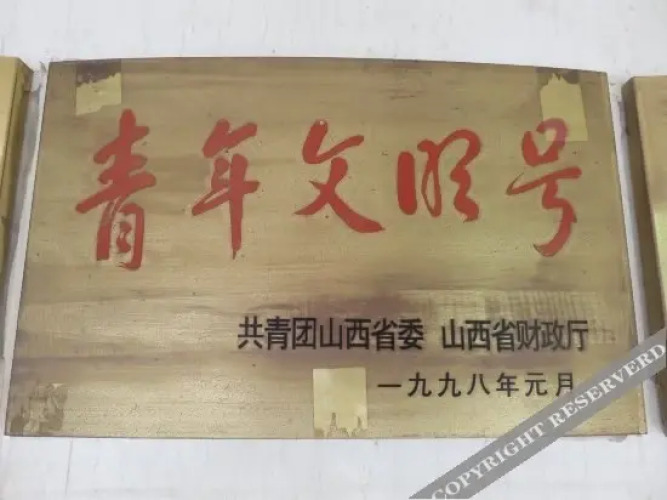 青年文明号
共青团山西省委 山西省财政厅
一九九八年元月
COPYRIGHT RESERVERD